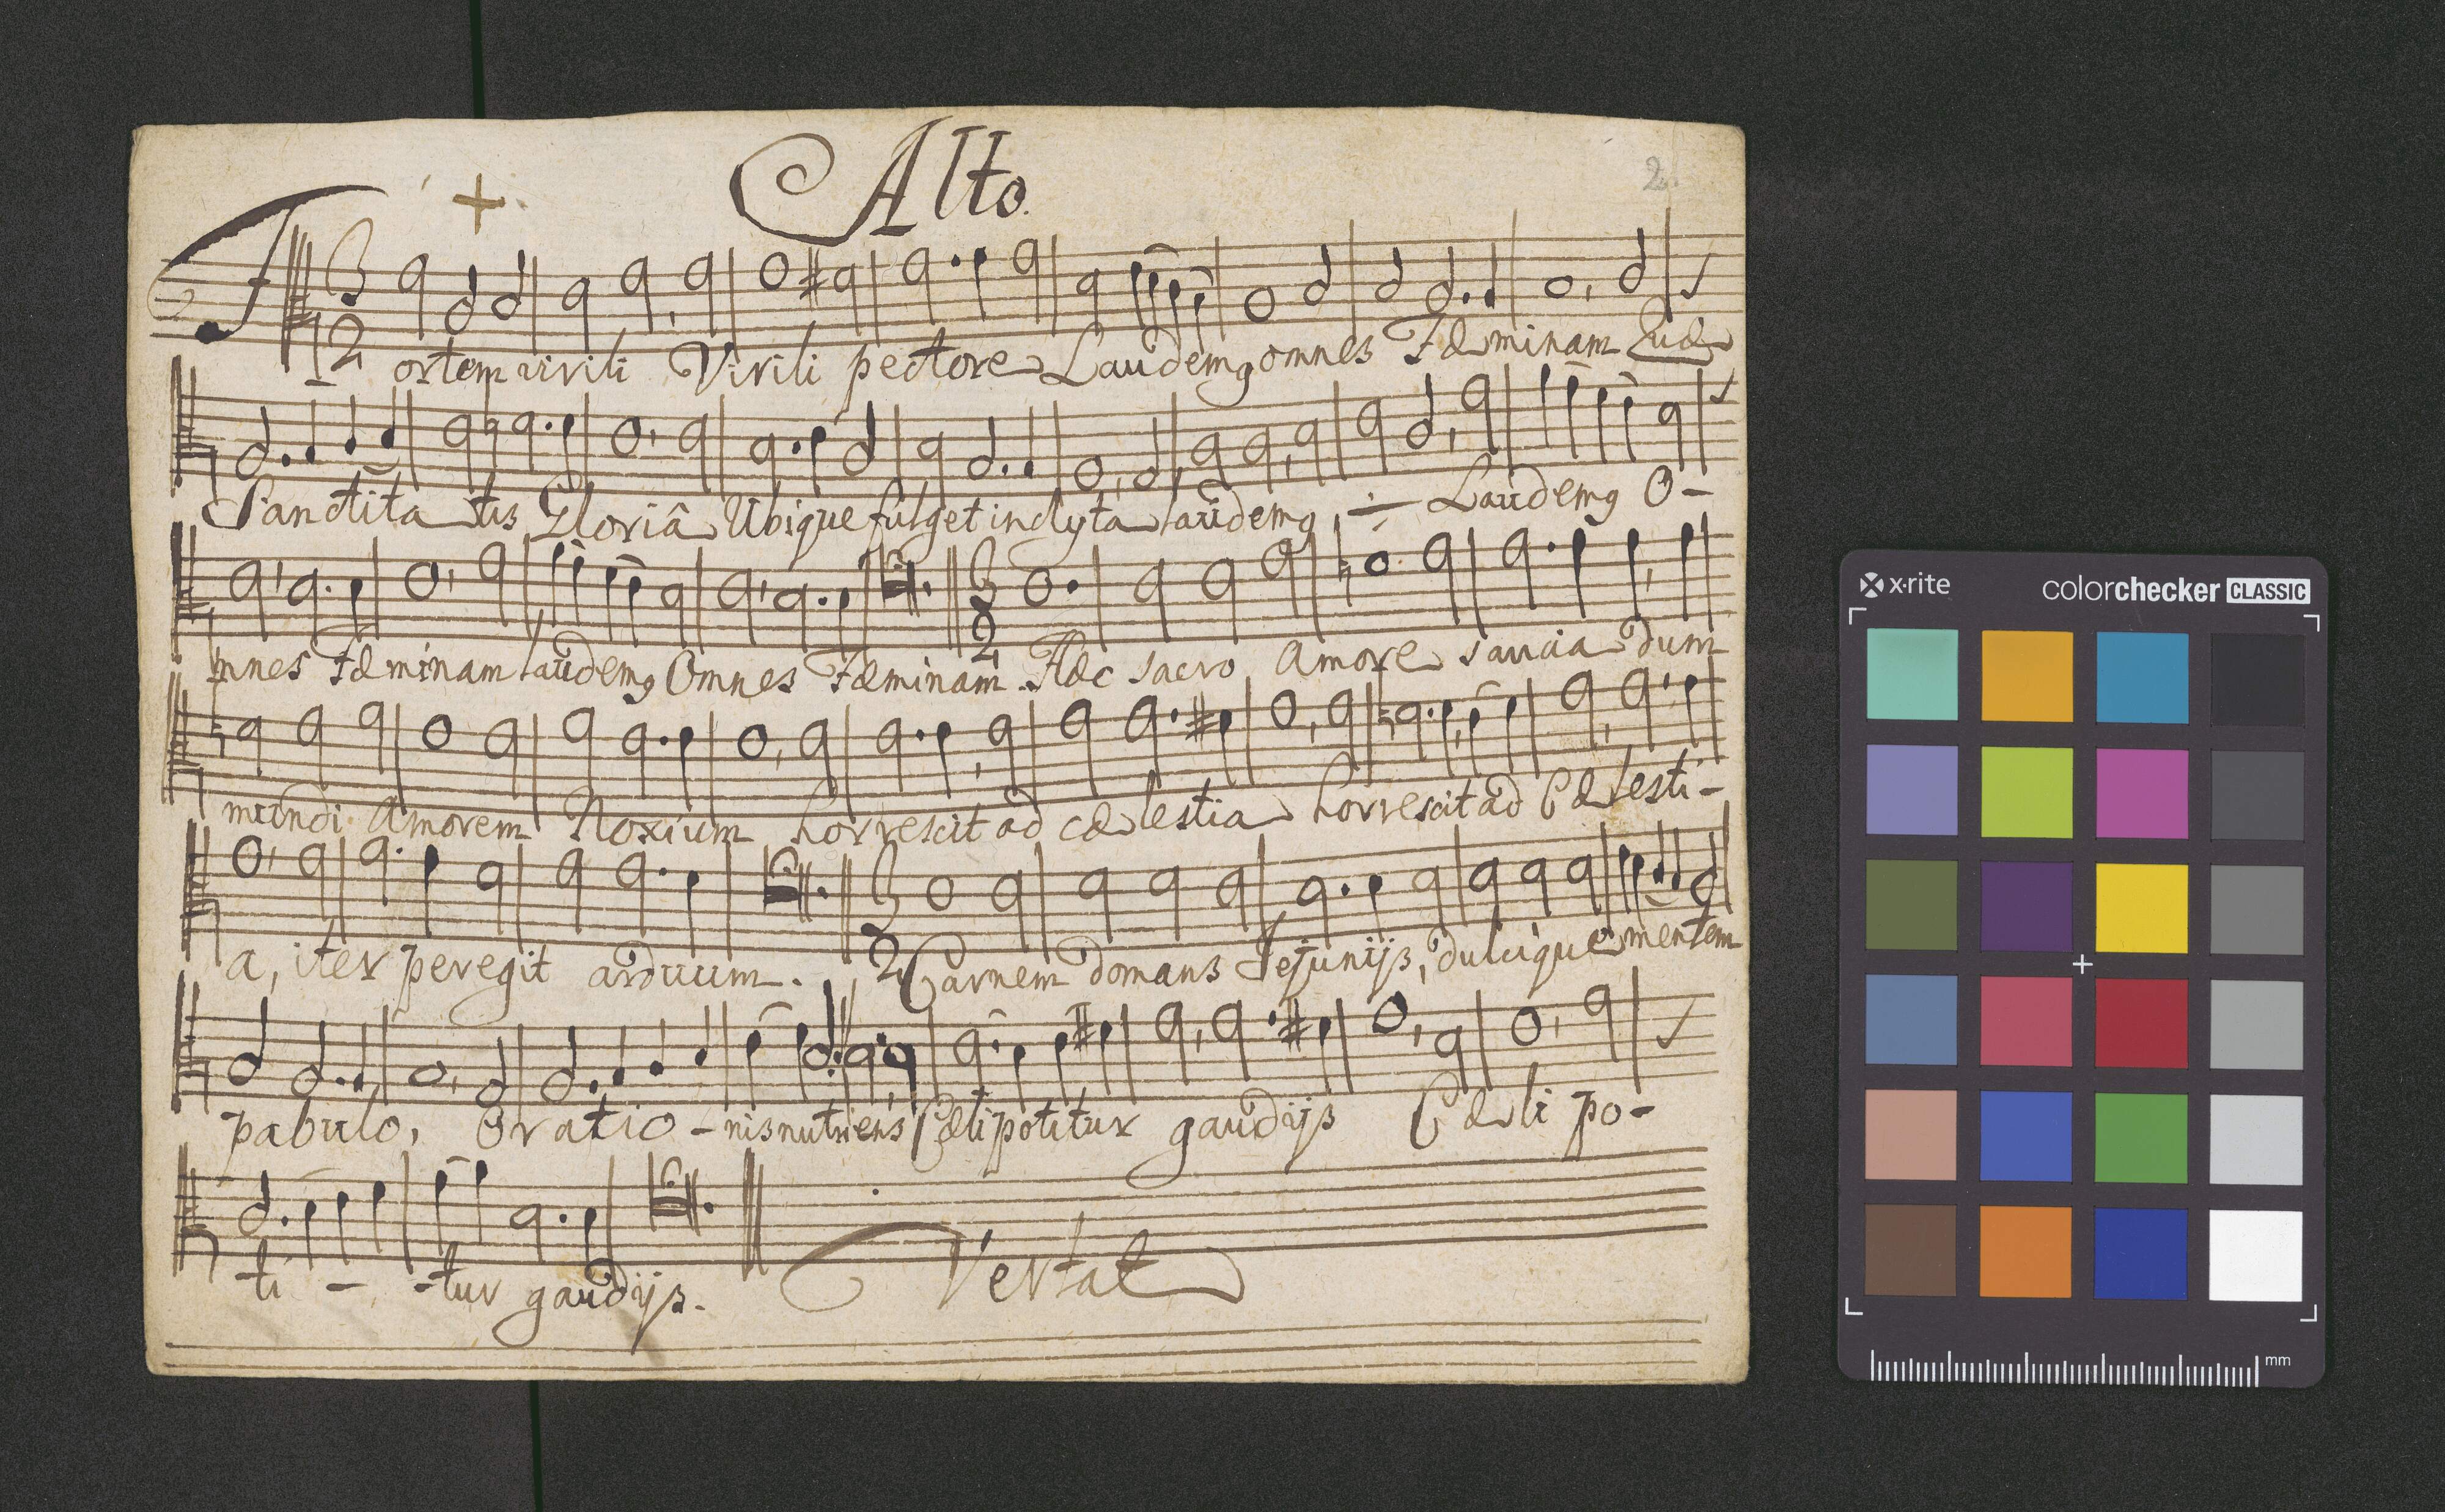 Alto.
2.
3
2
Fortem virili Virili pectore Laudemq omnes Fæminam Quæ
Sanctita tis Gloriâ Ubique fulget inclyta laudemq ÷ Laudemq O-
3
2
mnes Fæminam laudemq Omnes Fæminam. Hæc sacro Amore saucia dum
mundi Amorem Noxium horrescit ad cælestia horrescit ad Cælesti-
3
2
a, iter peregit arduum. Carnem domans Jejunijs, dulcique mentem
pabulo, Oratio - nis nutriens Cæli potitur gaudijs Cæli po-
ti - -tur gaudijs.
Vertat
x·rite
colorchecker CLASSIC
mm